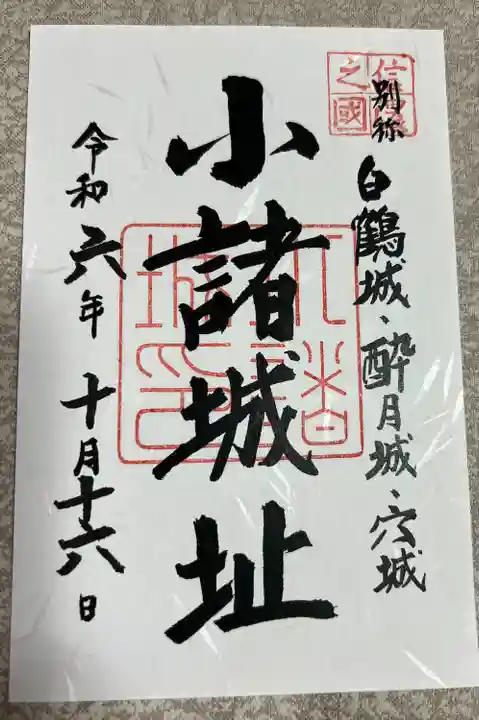 信濃之國
別称 白鶴城・酔月城・穴城
小諸城址
小諸城印
令和六年 十月十六日